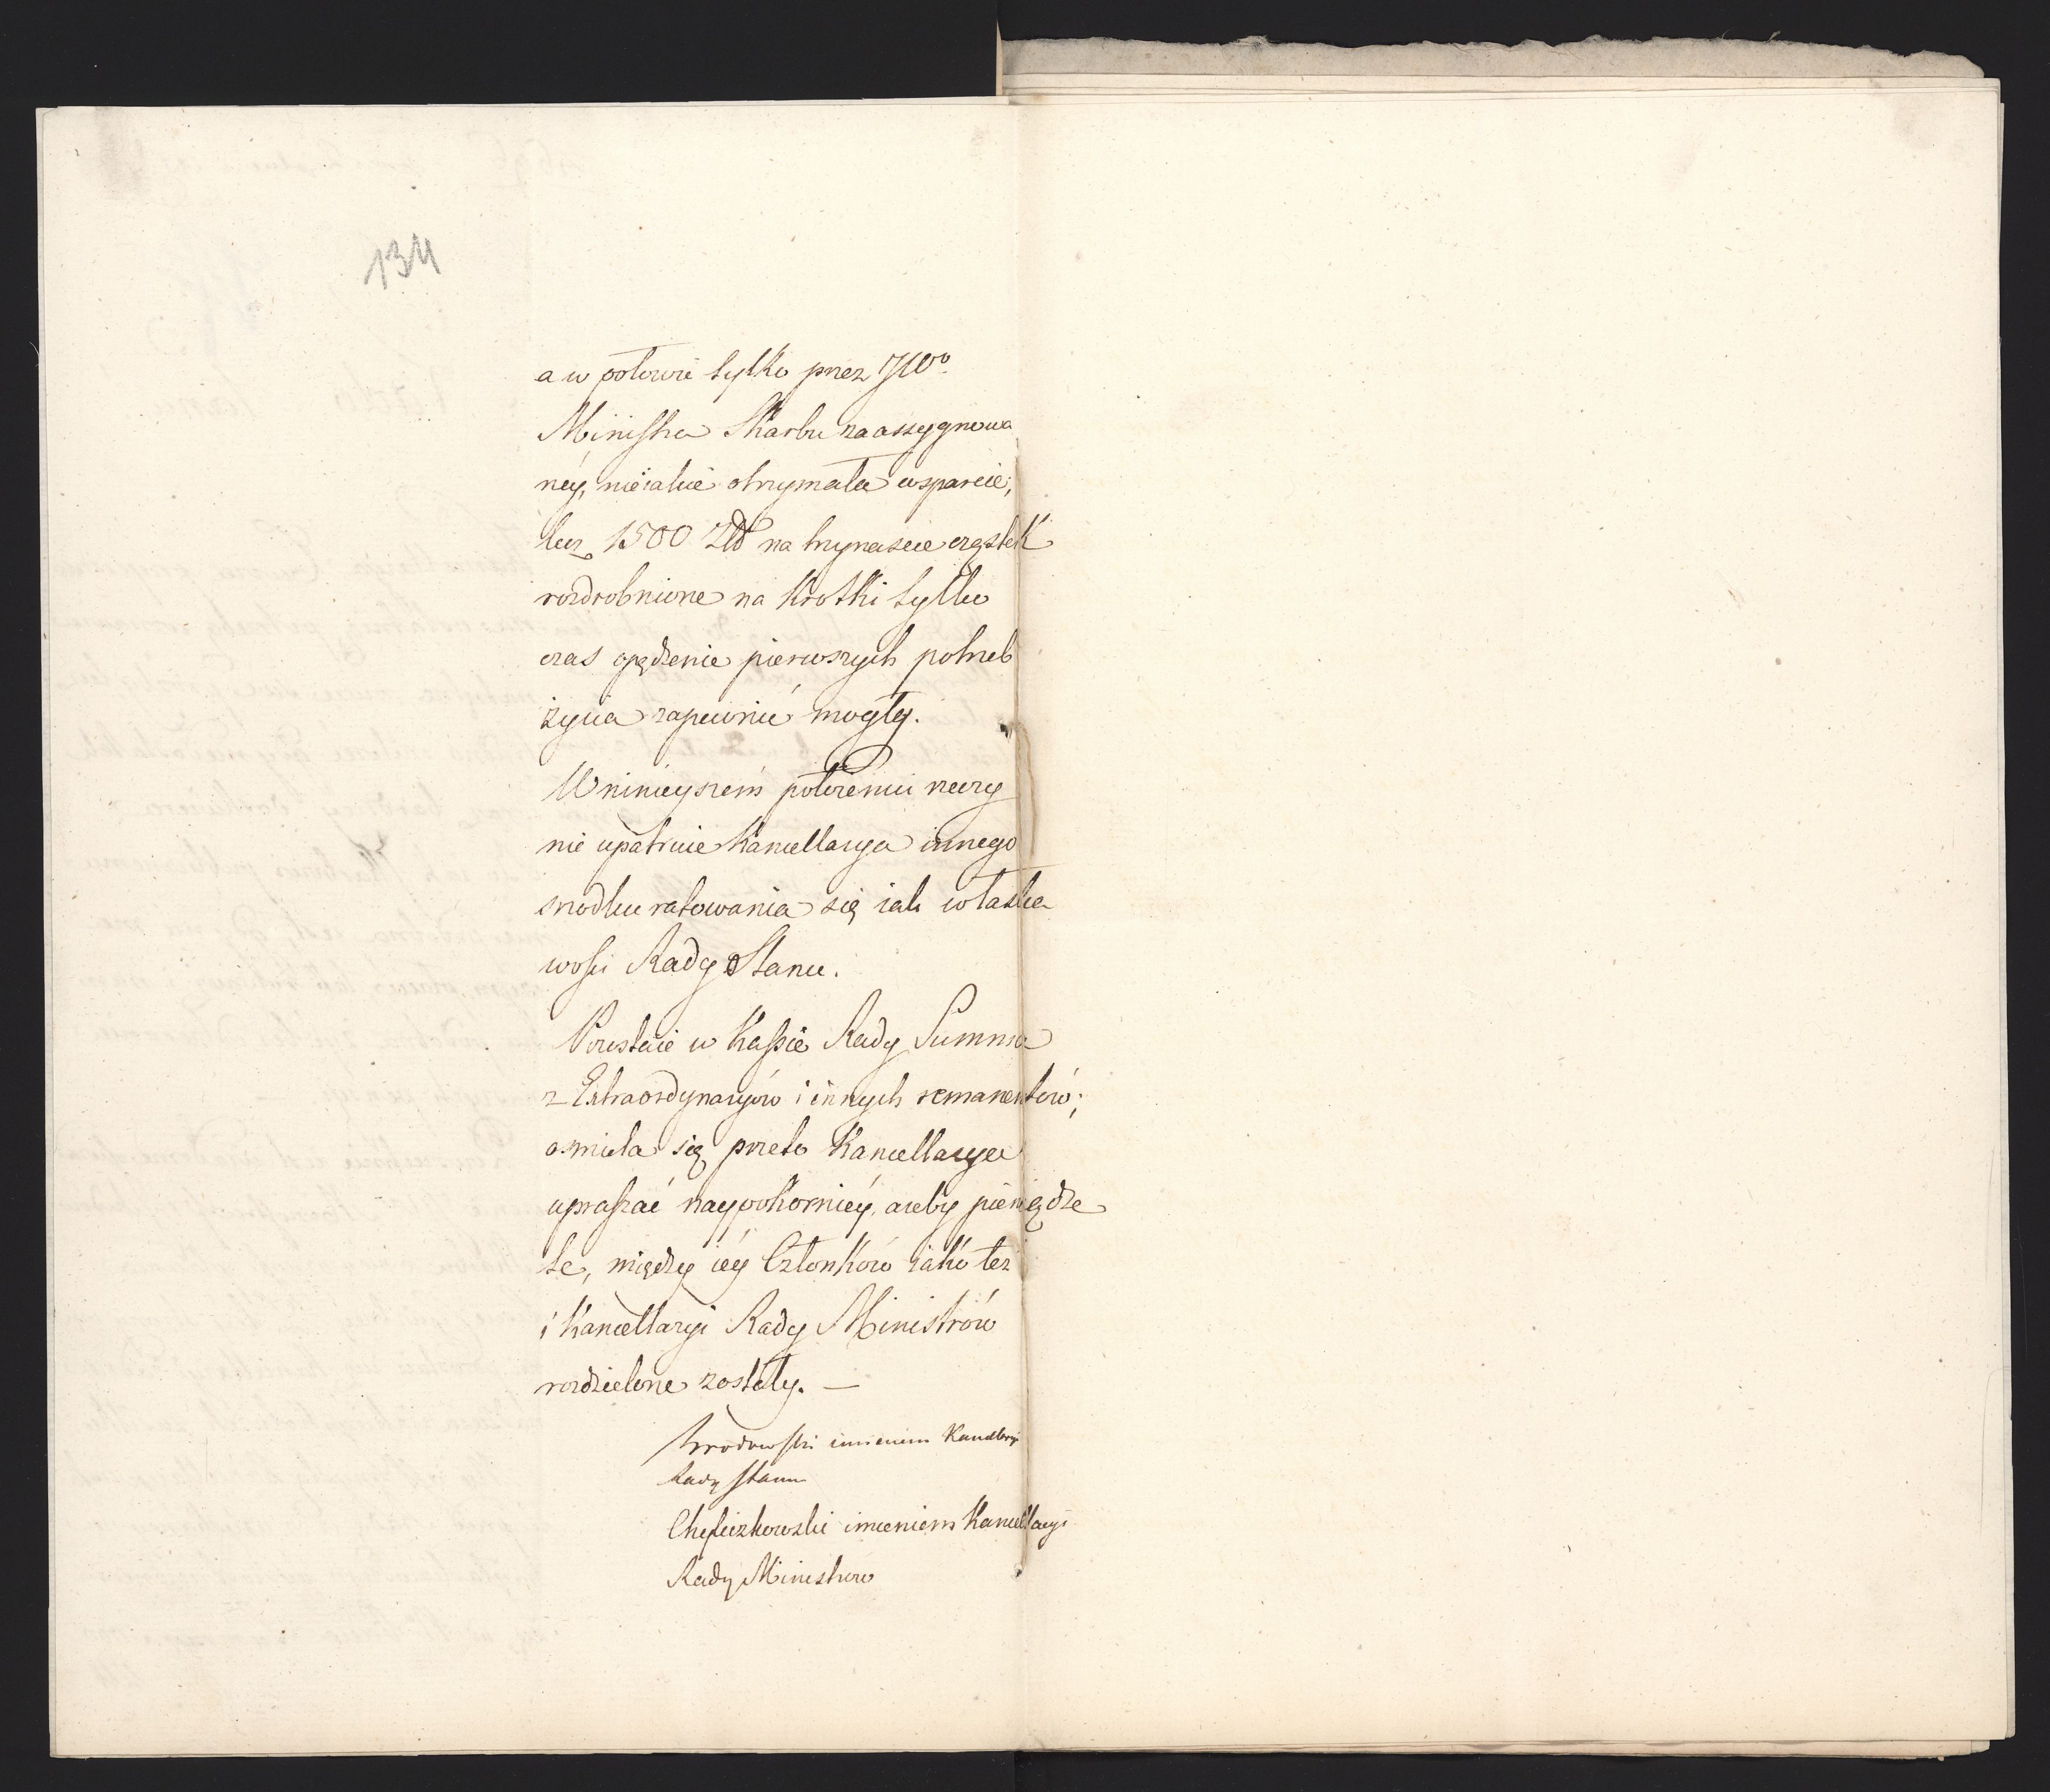 134
a w połowie tylko przez JWo
Ministra Skarbu zaassygnowa
néy, nieiakie otrzymała wsparcie,
lecz 1500 Złł na trzynascie cząstek
rozdrobnione na krotki tylko
czas opędzenie pierwszych potrzeb
życia zapewnić mogły.
W ninieyszém położeniu rzeczy
nie upatruie Kancellarya innego
srodku ratowania się iak w łaska
wości Rady Stanu.
Pozostaie w Kassie Rady Summa
z Extraordynaryów i innych remanentów;
osmiela się przeto Kancellarya
upraszać naypokorniéy, ażeby pieniądze
te, między iéy Członków iako też
i Kancellaryi Rady Ministrów
rozdzielone zostały. —
imieniem Kancellaryi
Rady Stanu
imieniem Kancellaryi
Rady Ministrow